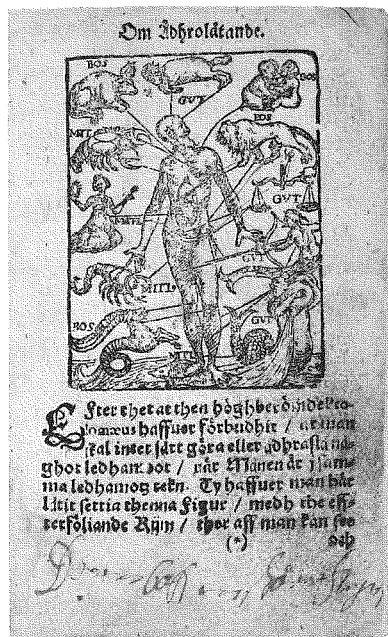 Om Ådhrolåtande.
BOS
GUT
BOS
MIT
BOS
GUT
MITI
GUT
BOS
GUT
MIT
Effter thet at then höghberömde Pto-
lomæus haffuer förbudhit / at man
skal intet sått göra eller ådhraslå nå-
ghot ledhamoot / når Månen är i sam-
ma ledhamotz tekn. Ty haffuer man hår
låtit settia thenna Figur / medh the eff-
terföliande Rijm / ther aff man kan see
(*) och